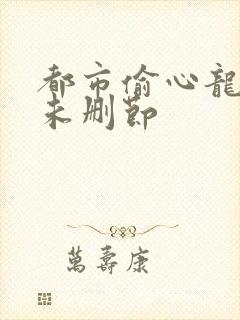 都市偷心龍
未删節
萬壽康